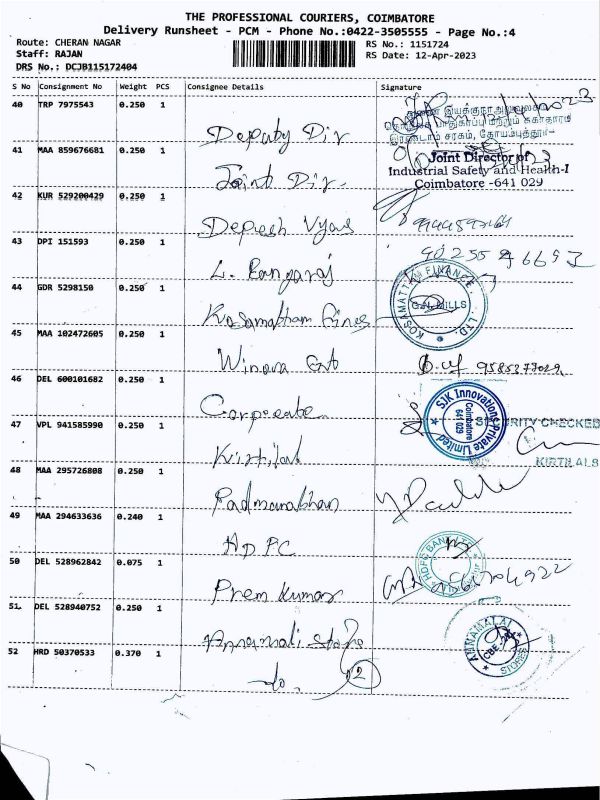 THE PROFESSIONAL COURIERS, COIMBATORE
Delivery Runsheet - PCM - Phone No.:0422-3505555 - Page No.:4
Route: CHERAN NAGAR
RS No.: 1151724
Staff: RAJAN
RS Date: 12-Apr-2023
DRS No.: DCJB115172404
S No Consignment No Weight PCS Consignee Details Signature
40 TRP 7975543 0.250 1
Deputy Dir
41 MAA 859676681 0.250 1
Joint Director of
Industrial Safety and Health-I
Coimbatore -641 029
Joint Dir.
42 KUR 529200429 0.250 1
Depesh Vyas
43 DPI 151593 0.250 1
L. Rangaraj
44 GDR 5298150 0.250 1
KOSAMATTAM FINANCE LTD.
G.N. MILLS
45 MAA 102472605 0.250 1
Winora
9585377029
46 DEL 600101682 0.250 1
Corporate
SJK Innovations Private Limited
Coimbatore
641 029
47 VPL 941585990 0.250 1
SECURITY CHECKED
Kirtilal
KIRTILALS
48 MAA 295726808 0.250 1
Padmanabhan
49 MAA 294633636 0.240 1
HDFC
HDFC BANK LTD
50 DEL 528962842 0.075 1
Prem Kumar
51 DEL 528940752 0.250 1
Annamalai Store
ANNAMALAI STORES
CBE
52 HRD 50370533 0.370 1
do. 2